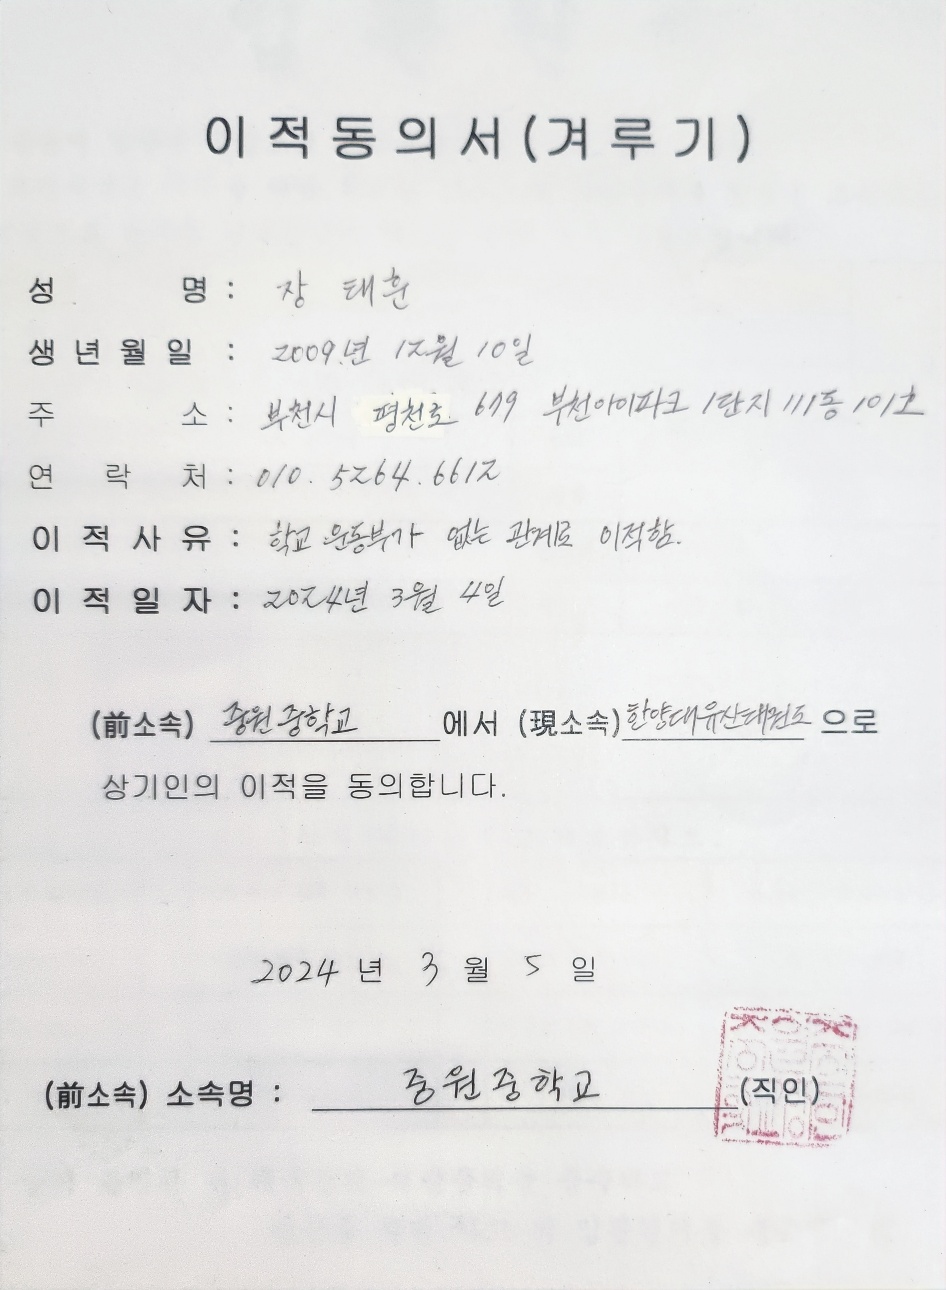 이적동의서(겨루기)
성 명 : 장 태훈
생년월일 : 2009.년 12월 10일
주 소 : 부천시 평천로 679 부천아이파크 1단지 111동 101호
연 락 처 : 010. 5264. 6612
이적사유 : 학교 운동부가 없는 관계로 이적함.
이적일자 : 2024년 3월 4일
(前소속) 중원중학교 에서 (現소속) 한양대유산태권도 으로
상기인의 이적을 동의합니다.
2024 년 3 월 5 일
(前소속) 소속명 : 중원중학교 (직인)